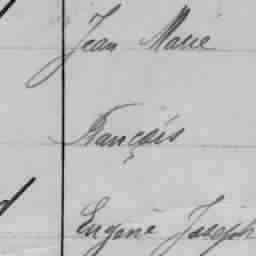 Jean Marie
François
Eugène Joseph